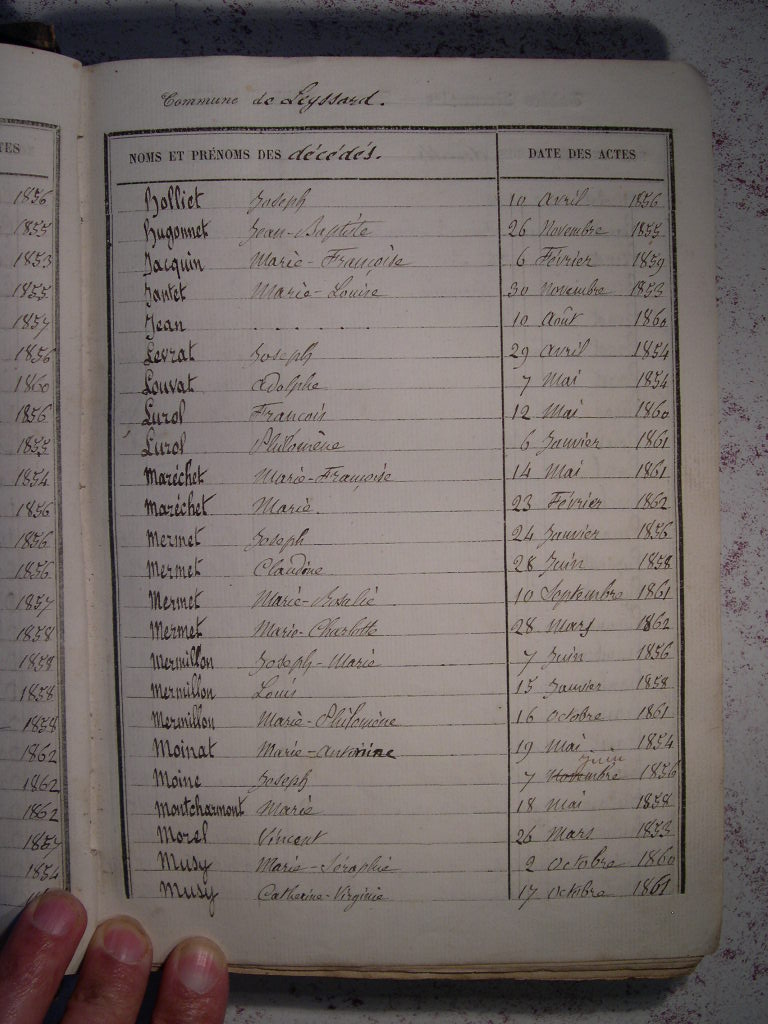 TES
1856
1855
1853
1855
1857
1856
1860
1856
1855
1854
1856
1856
1856
1857
1858
1858
1858
1858
1862
1862
1862
1857
1854
Commune de Leyssard.
NOMS ET PRÉNOMS DES décédés. DATE DES ACTES
Holliet Joseph 10 Avril 1856
Hugonnet Jean-Baptiste 26 Novembre 1855
Jacquin Marie-Françoise 6 Février 1859
Jantet Marie-Louise 30 Novembre 1853
Jean . . . . . . . . 10 Août 1860
Levrat Joseph 29 Avril 1854
Louvat Adolphe 7 Mai 1854
Lurol François 12 Mai 1860
Lurol Philomène 6 Janvier 1861
Maréchet Marie-Françoise 14 Mai 1861
Maréchet Marie 23 Février 1862
Mermet Joseph 24 Janvier 1856
Mermet Claudine 28 Juin 1858
Mermet Marie-Rosalie 10 Septembre 1861
Mermet Marie-Charlotte 28 Mars 1862
Mermillon Joseph-Marie 7 Juin 1856
Mermillon Louis 15 Janvier 1858
Mermillon Marie-Philomène 16 Octobre 1861
Moinat Marie-Antonine 19 Mai 1854
Juin
Moine Joseph 7 Novembre 1856
Montcharmont Marie 18 Mai 1858
Morel Vincent 26 Mars 1853
Musy Marie-Séraphie 2 Octobre 1860
Musy Catherine-Virginie 17 Octobre 1861